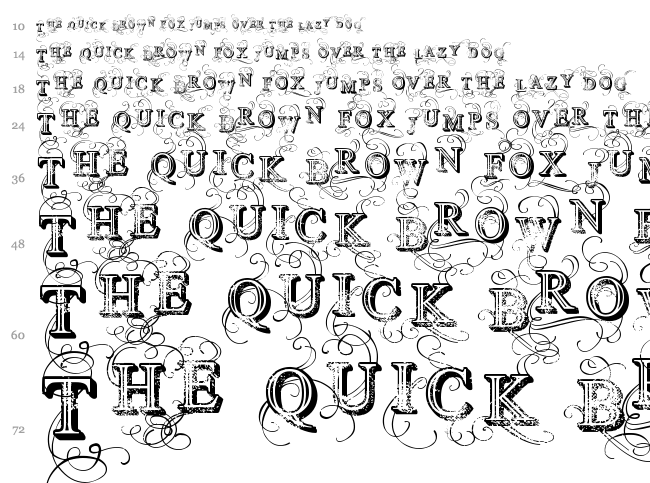 10 THE QUICK BROWN FOX JUMPS OVER THE LAZY DOG
14 THE QUICK BROWN FOX JUMPS OVER THE LAZY DOG
18 THE QUICK BROWN FOX JUMPS OVER THE LAZY DOG
24 THE QUICK BROWN FOX JUMPS OVER THE
36 THE QUICK BROWN FOX JUM
48 THE QUICK BROWN F
60 THE QUICK BROW
72 THE QUICK BR